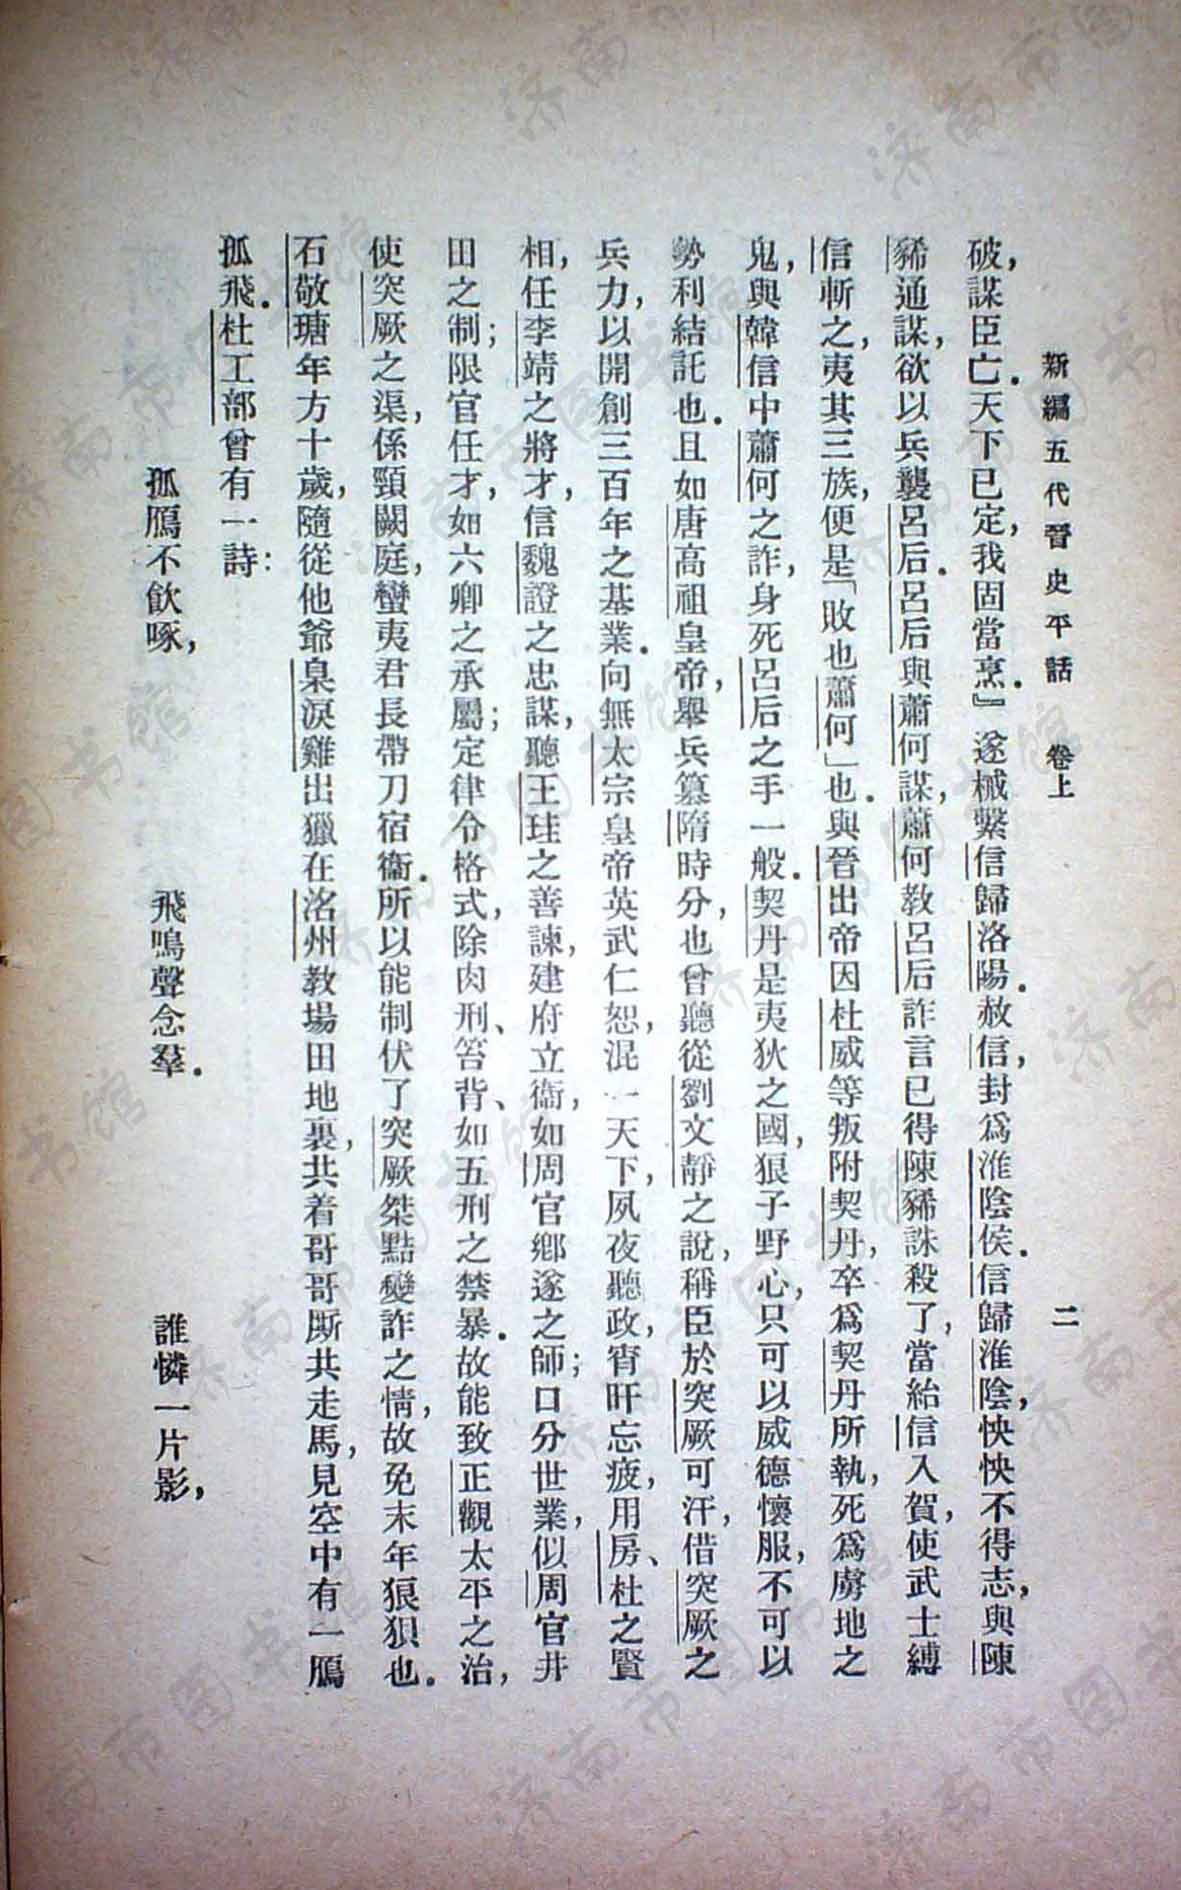 新編五代晉史平話　卷上　二
破，謀臣亡．天下已定，我固當烹．』遂械繫信歸洛陽．赦信，封爲淮陰侯．信歸淮陰，怏怏不得志，與陳
豨通謀，欲以兵襲呂后．呂后與蕭何謀，蕭何教呂后詐言已得陳豨誅殺了，當紿信入賀，使武士縛
信斬之，夷其三族，便是「敗也蕭何」也．與晉出帝因杜威等叛附契丹，卒爲契丹所執，死爲虜地之
鬼，與韓信中蕭何之詐，身死呂后之手一般．契丹是夷狄之國，狼子野心，只可以威德懷服，不可以
勢利結託也．且如唐高祖皇帝，舉兵篡隋時分，也曾聽從劉文靜之說，稱臣於突厥可汗，借突厥之
兵力，以開創三百年之基業．向無太宗皇帝英武仁恕，混一天下，夙夜聽政，宵旰忘疲，用房、杜之賢
相，任李靖之將才，信魏證之忠謀，聽王珪之善諫，建府立衞，如周官鄉遂之師；口分世業，似周官井
田之制；限官任才，如六卿之承屬；定律令格式，除肉刑、笞背、如五刑之禁暴．故能致正觀太平之治，
使突厥之渠，係頸闕庭，蠻夷君長帶刀宿衞．所以能制伏了突厥桀黠變詐之情，故免末年狼狽也．
石敬瑭年方十歲，隨從他爺臬淚雞出獵在洺州教場田地裏，共着哥哥厮共走馬，見空中有一鴈
孤飛．杜工部曾有一詩：
孤鴈不飲啄，　飛鳴聲念羣．　誰憐一片影，
济南市图书馆